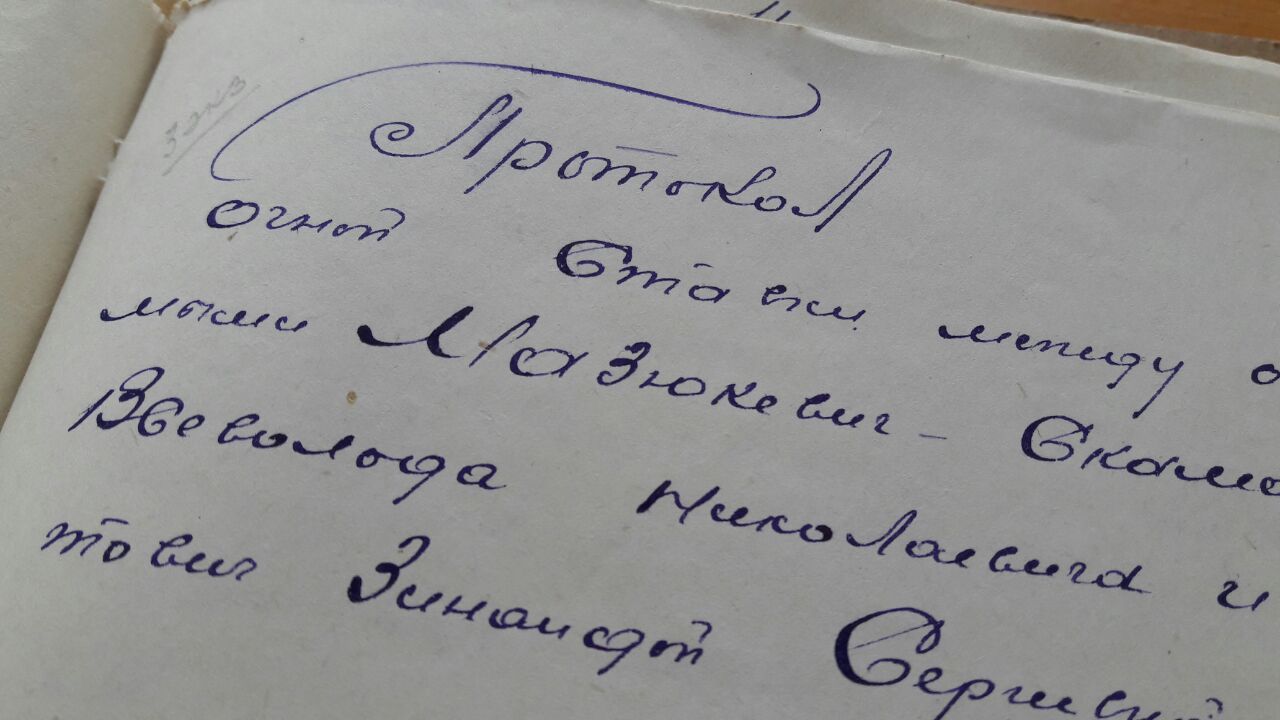 3 экз
Протокол
очной Ставки между о
мыми Мазюкевич - Скаме
Всеволода Николаевича и
тович Зинаидой Сергеевн